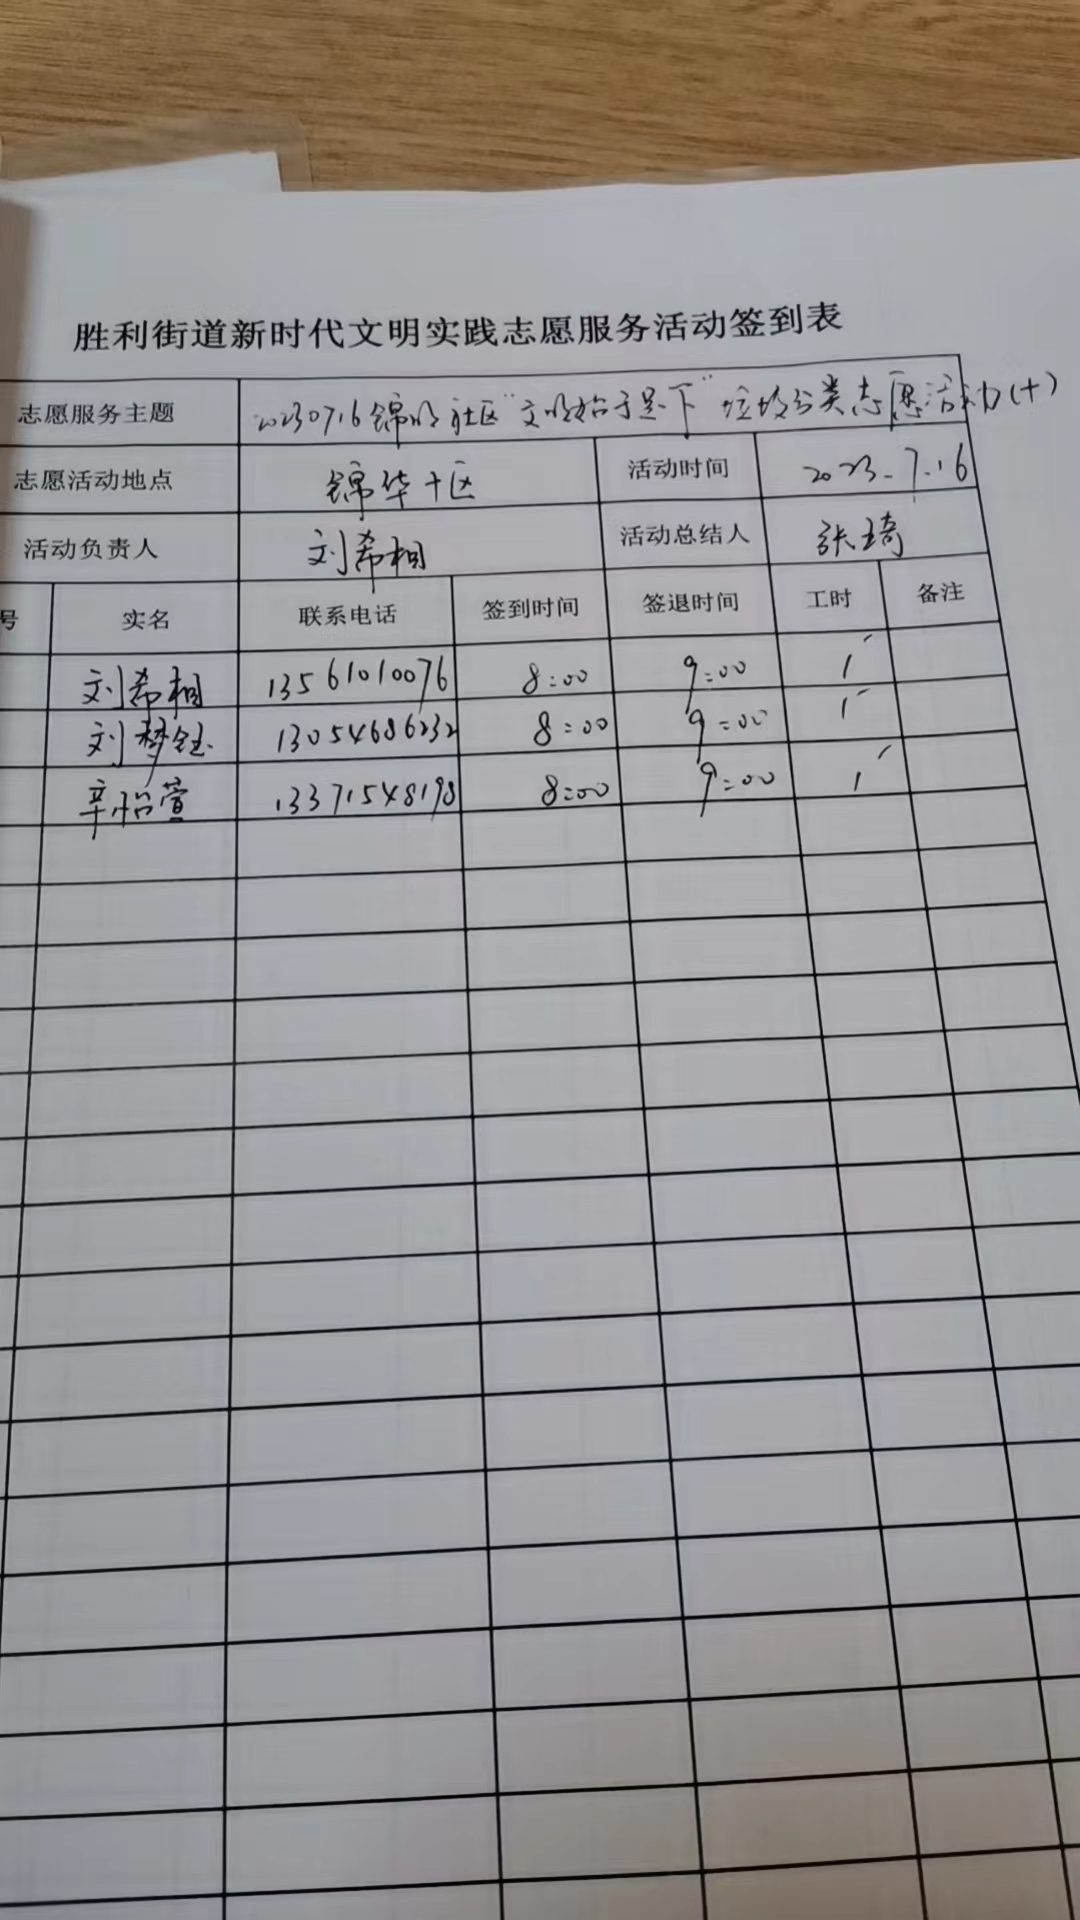 胜利街道新时代文明实践志愿服务活动签到表
志愿服务主题 20230716锦明社区"文明始于足下"垃圾分类志愿活动(十)
志愿活动地点 锦华十区 活动时间 2023.7.16
活动负责人 刘希相 活动总结人 张琦
号 实名 联系电话 签到时间 签退时间 工时 备注
刘希相 13561010076 8:00 9:00 1
刘梦钰 13054686232 8:00 9:00 1
辛怡萱 13371548198 8:00 9:00 1